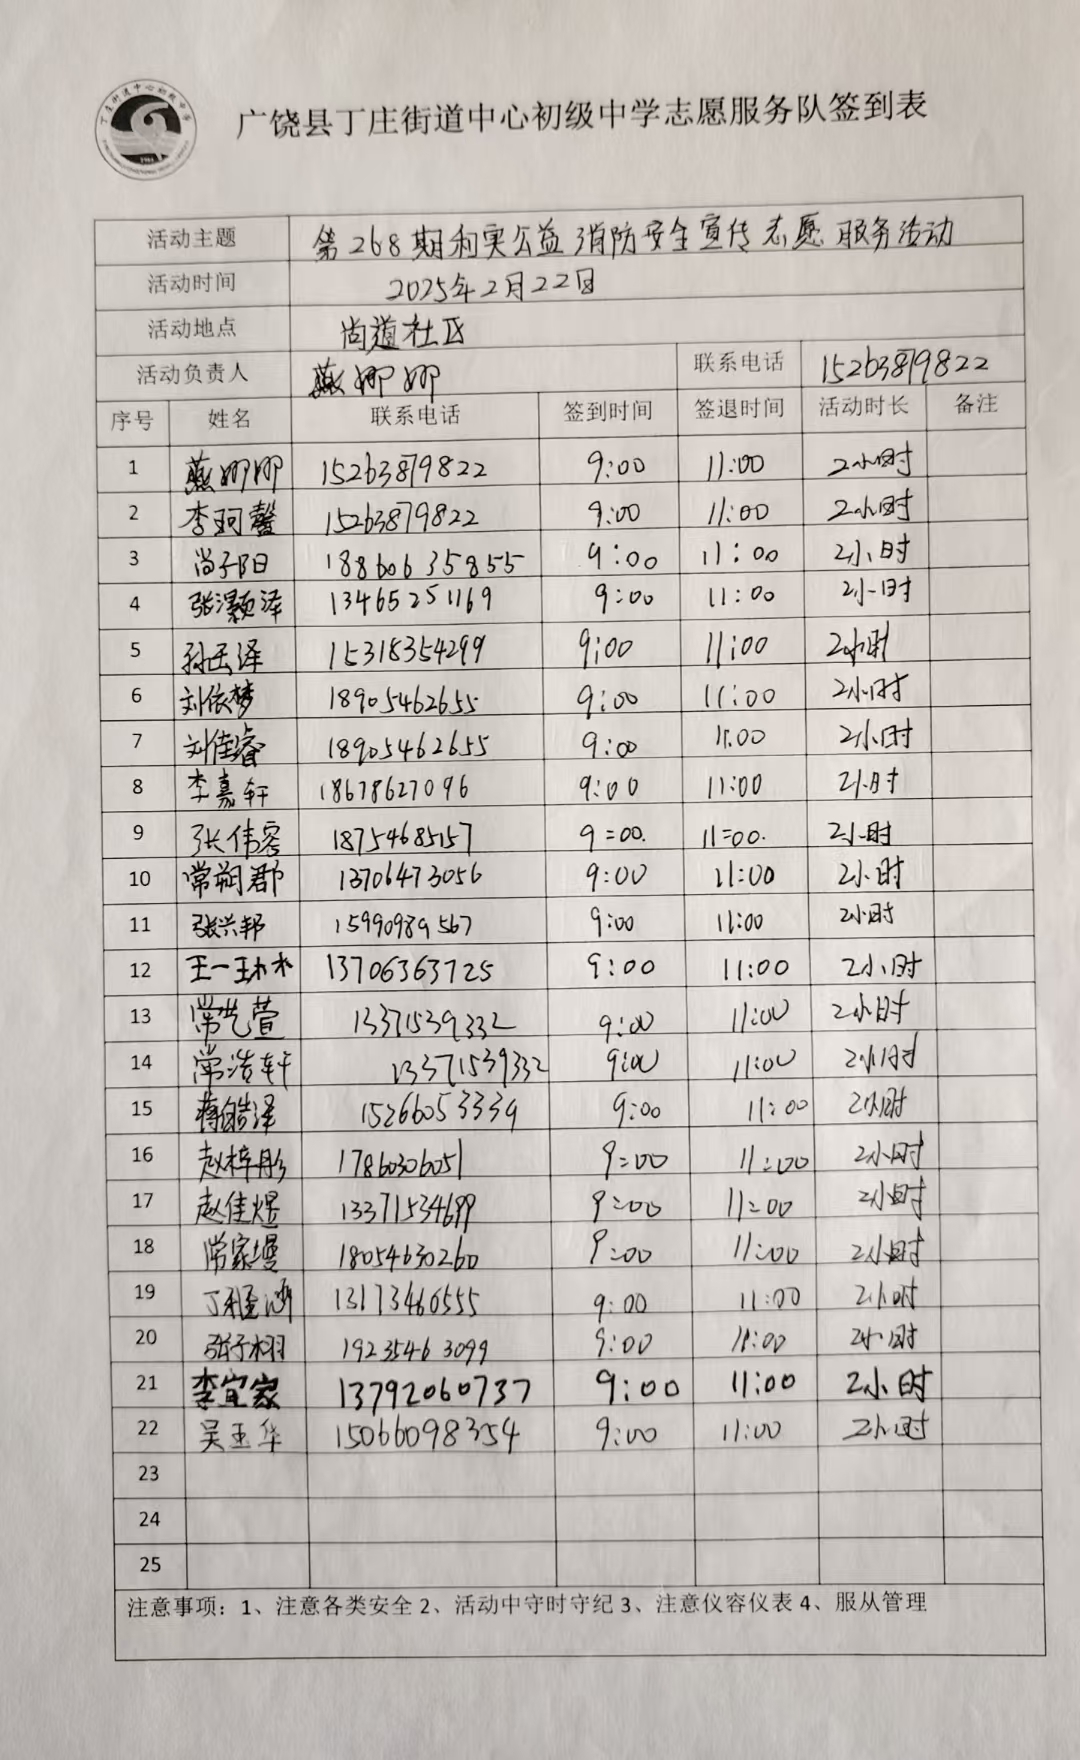 广饶县丁庄街道中心初级中学志愿服务队签到表
活动主题 第268期利实公益消防安全宣传志愿服务活动
活动时间 2025年2月22日
活动地点 尚道社区
活动负责人 燕娜娜 联系电话 15263879822
序号 姓名 联系电话 签到时间 签退时间 活动时长 备注
1 燕娜娜 15263879822 9:00 11:00 2小时
2 李珂馨 15263879822 9:00 11:00 2小时
3 尚子阳 18860635855 9:00 11:00 2小时
4 张灏颖泽 13465251169 9:00 11:00 2小时
5 孙云泽 15318354299 9:00 11:00 2小时
6 刘依梦 18905462655 9:00 11:00 2小时
7 刘佳睿 18905462655 9:00 11:00 2小时
8 李嘉轩 18678627096 9:00 11:00 2小时
9 张伟容 18754685157 9=00. 11=00. 2小时
10 常朔郡 13706473056 9:00 11:00 2小时
11 张兴邦 15990989567 9:00 11:00 2小时
12 王一琳 13706363725 9:00 11:00 2小时
13 常艺萱 13371539332 9:00 11:00 2小时
14 常浩轩 13371539332 9:00 11:00 2小时
15 蒋皓泽 15266053339 9:00 11:00 2小时
16 赵梓彤 17860306051 9:00 11:00 2小时
17 赵佳煜 13371534699 9:00 11:00 2小时
18 常家墁 18054630260 9:00 11:00 2小时
19 丁梓涵 13173460555 9:00 11:00 2小时
20 张子栩 19235463099 9:00 11:00 2小时
21 李宜家 13792060737 9:00 11:00 2小时
22 吴玉华 15066098354 9:00 11:00 2小时
23
24
25
注意事项：1、注意各类安全 2、活动中守时守纪 3、注意仪容仪表 4、服从管理